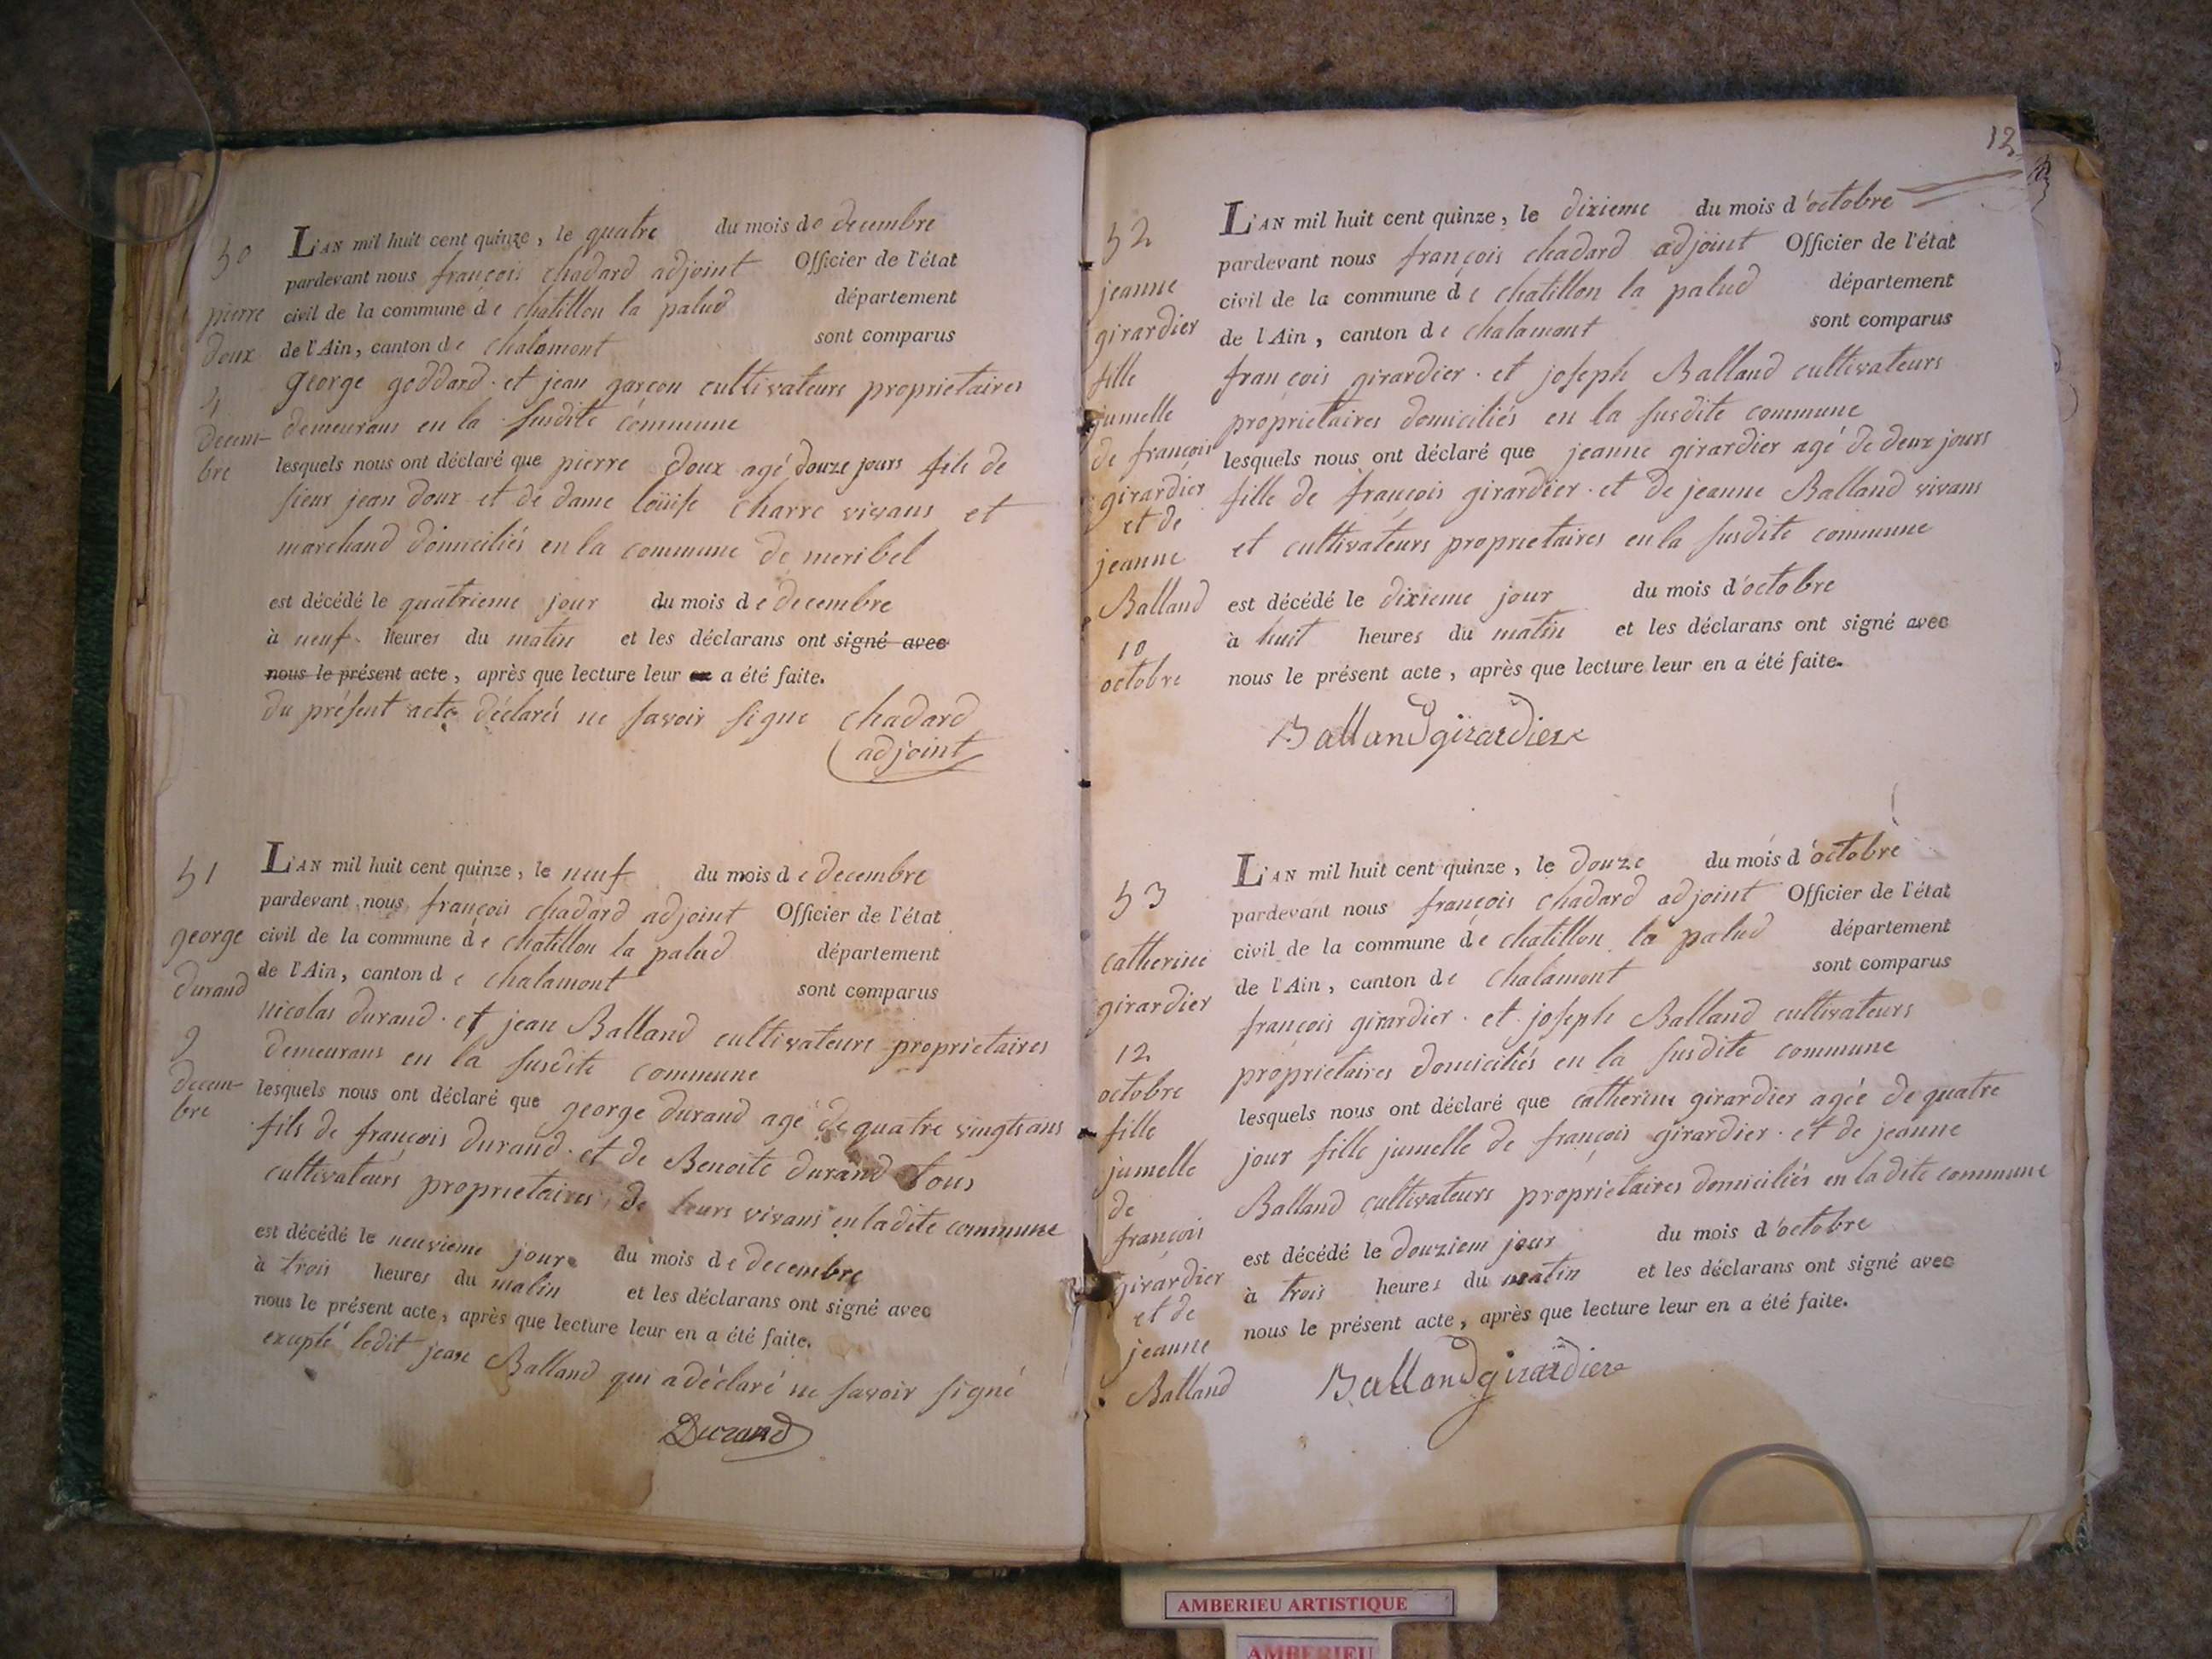 50
pierre
doux
4
decem-
bre
L'AN mil huit cent quinze, le quatre du mois de decembre
pardevant nous françois chadard adjoint Officier de l'état
civil de la commune de chatillon la palud département
de l'Ain, canton de chalamont sont comparus
george goddard et jean garçon cultivateurs proprietaires
demeurans en la susdite commune
lesquels nous ont déclaré que pierre doux agé douze jours fils de
sieur jean doux et de dame loüise charre vivans et
marchand domiciliés en la commune de meribel
est décédé le quatrieme jour du mois de decembre
à neuf heures du matin et les déclarans ont signé avec
nous le présent acte, après que lecture leur en a été faite.
du présent acte déclarés ne savoir signe chadard
adjoint
51
george
durand
9
decem-
bre
L'AN mil huit cent quinze, le neuf du mois de decembre
pardevant nous françois chadard adjoint Officier de l'état
civil de la commune de chatillon la palud département
de l'Ain, canton de chalamont sont comparus
nicolas durand et jean Balland cultivateurs proprietaires
demeurans en la susdite commune
lesquels nous ont déclaré que george durand agé de quatre vingts ans
fils de françois durand et de Benoite durand tous
cultivateurs proprietaires de leurs vivans en ladite commune
est décédé le neuvieme jour du mois de decembre
à trois heures du matin et les déclarans ont signé avec
nous le présent acte, après que lecture leur en a été faite.
excepté ledit jean Balland qui a déclaré ne savoir signé
Durand
12
52
jeanne
girardier
fille
jumelle
de françois
girardier
et de
jeanne
Balland
10
octobre
L'AN mil huit cent quinze, le dixieme du mois d'octobre
pardevant nous françois chadard adjoint Officier de l'état
civil de la commune de chatillon la palud département
de l'Ain, canton de chalamont sont comparus
françois girardier et joseph Balland cultivateurs
proprietaires domiciliés en la susdite commune
lesquels nous ont déclaré que jeanne girardier agé de deux jours
fille de françois girardier et de jeanne Balland vivans
et cultivateurs proprietaires en la susdite commune
est décédé le dixieme jour du mois d'octobre
à huit heures du matin et les déclarans ont signé avec
nous le présent acte, après que lecture leur en a été faite.
Balland girardier
53
catherine
girardier
12
octobre
fille
jumelle
de
françois
girardier
et de
jeanne
Balland
L'AN mil huit cent quinze, le douze du mois d'octobre
pardevant nous françois chadard adjoint Officier de l'état
civil de la commune de chatillon la palud département
de l'Ain, canton de chalamont sont comparus
françois girardier et joseph Balland cultivateurs
proprietaires domiciliés en la susdite commune
lesquels nous ont déclaré que catherine girardier agée de quatre
jour fille jumelle de françois girardier et de jeanne
Balland cultivateurs proprietaires domiciliés en ladite commune
est décédé le douziem jour du mois d'octobre
à trois heures du matin et les déclarans ont signé avec
nous le présent acte, après que lecture leur en a été faite.
Balland girardier
AMBERIEU ARTISTIQUE
AMBERIEU